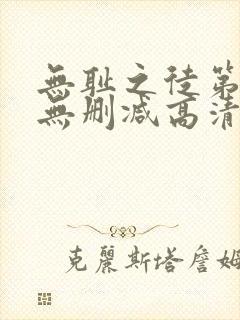 無耻之徒第
無删减高清
克麗斯塔詹姆